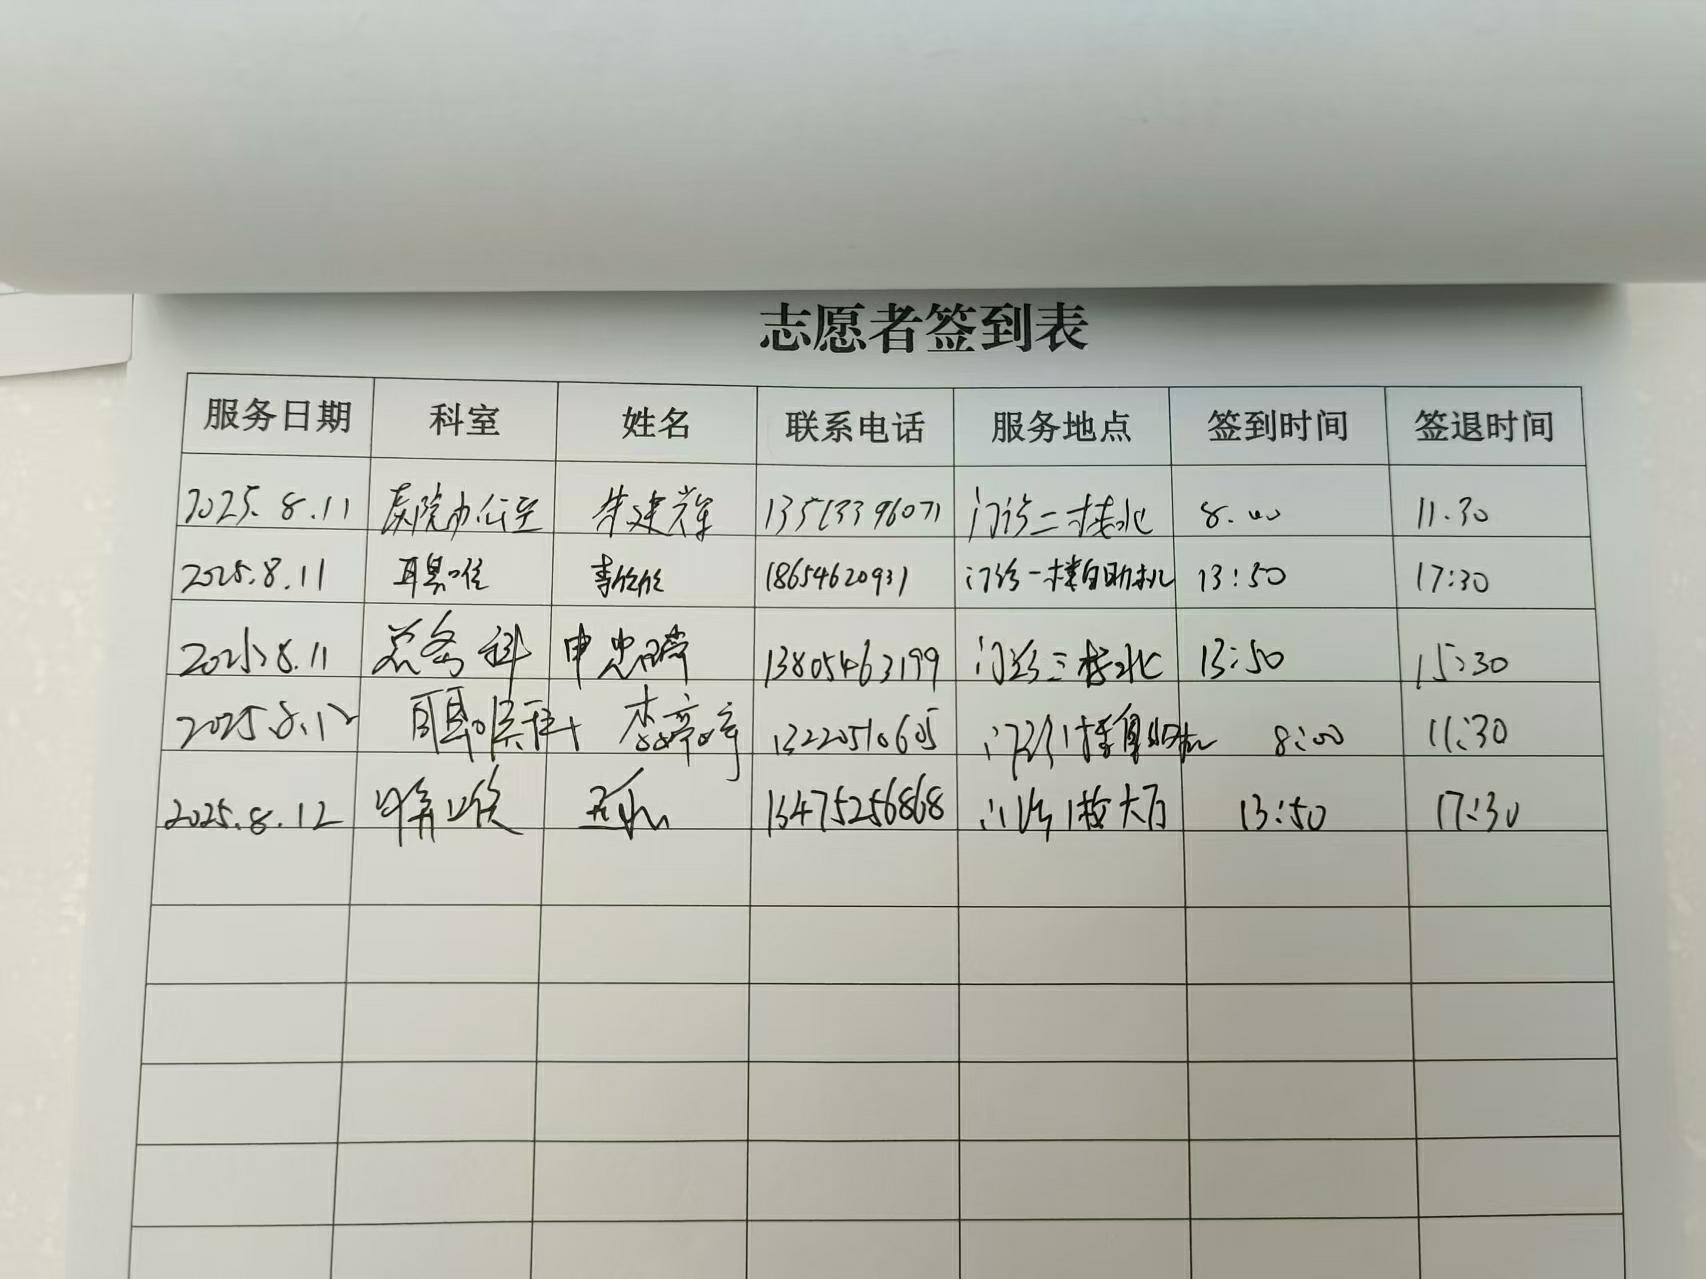 志愿者签到表
服务日期 科室 姓名 联系电话 服务地点 签到时间 签退时间
2025.8.11 医院办公室 朱建辉 13573396071 门诊二楼北 8:00 11.30
2025.8.11 耳鼻喉 李欣欣 18654620931 门诊一楼自助机 13:50 17:30
2025.8.11 总务科 申忠瑞 13805463199 门诊三楼北 13:50 15:30
2025.8.12 耳鼻喉科 李婷婷 13220510605 门诊1楼自助机 8:00 11:30
2025.8.12 耳鼻喉 13475256868 门诊1楼大厅 13:50 17:30